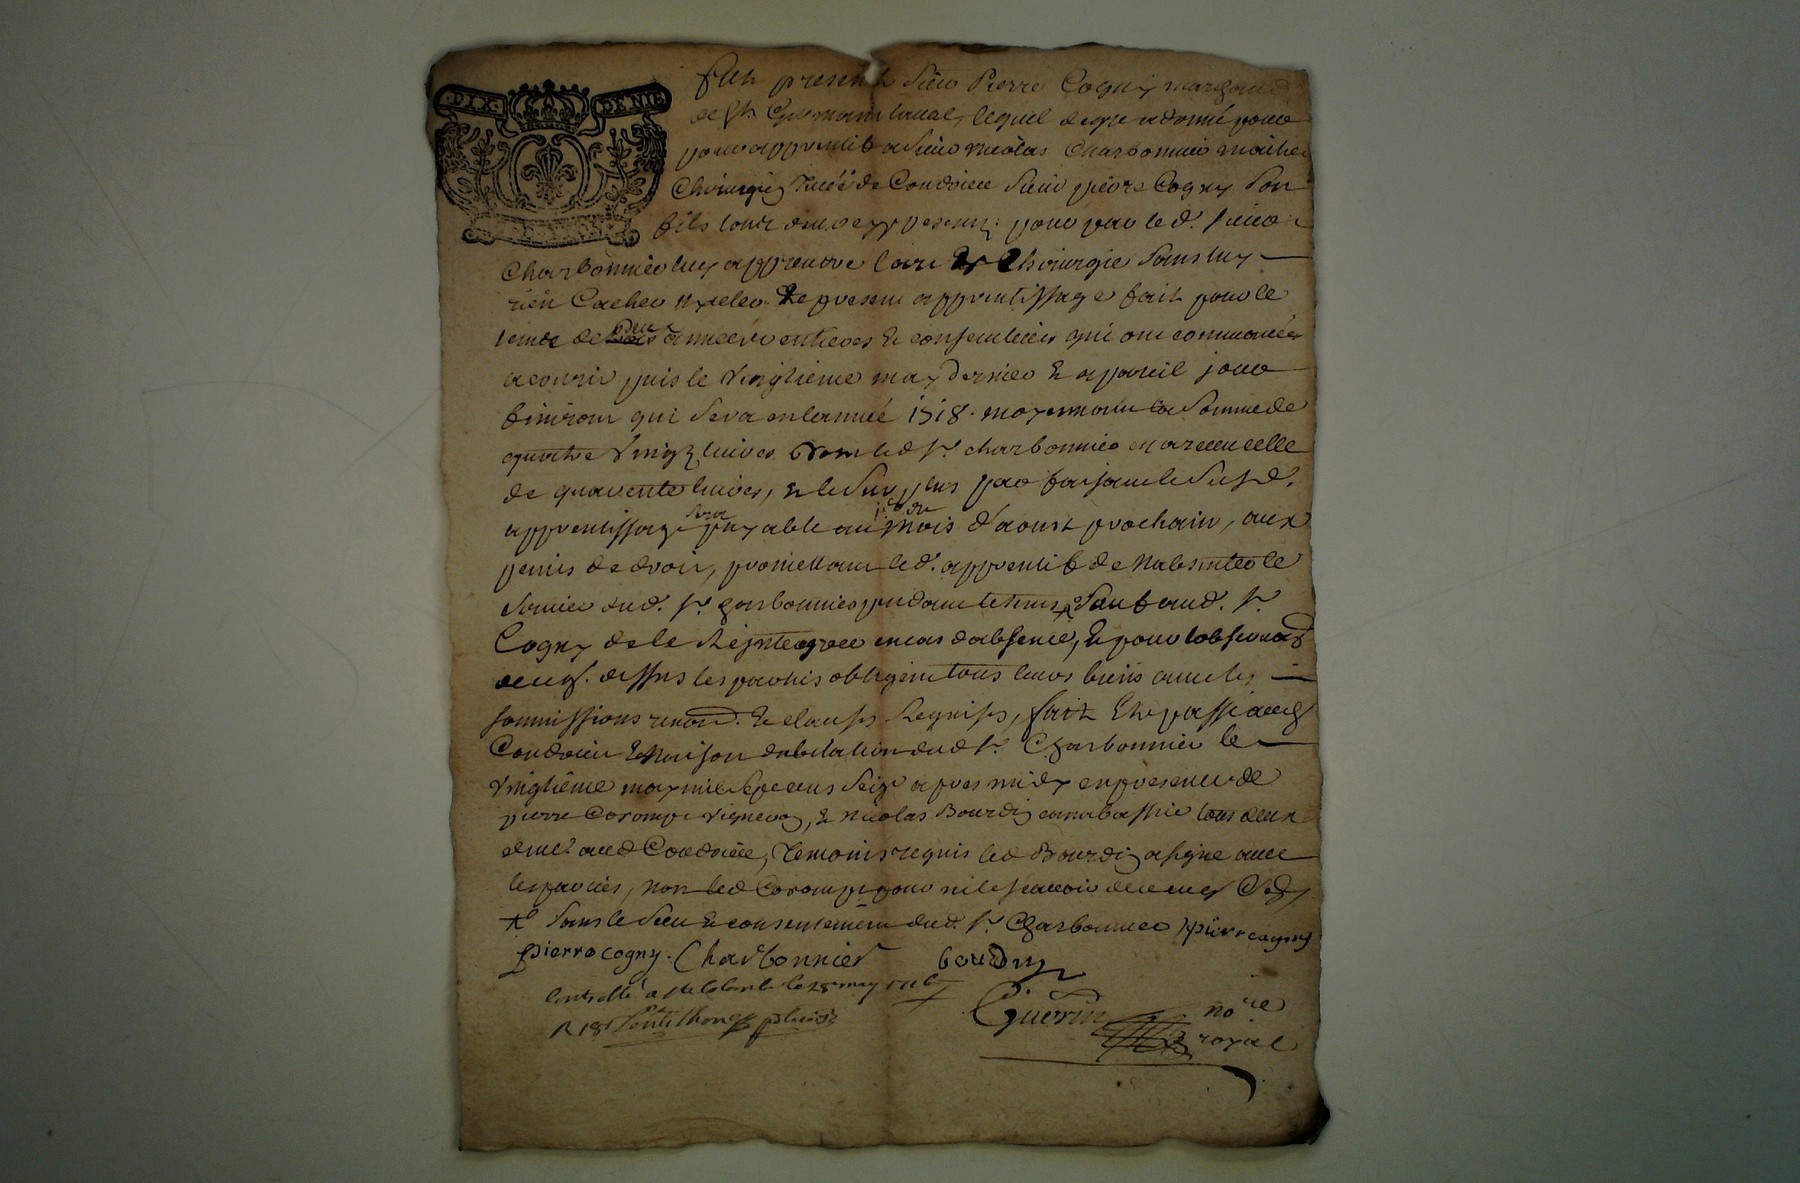 DIX DENIE
Fut present Sieur Pierre Cogny marchand
de lequel de gre a donné pour
pour apprentif a Sieur nicolas Charbonnier maitre
Chirurgien de Condrieu Sieur pierre Cogny Son
fils pour par led. Sieur
Charbonnier luy apprendre lart Et Chirurgie Sans luy
rien Cacher ny celer Le present apprentissage fait pour le
temps de deux années entieres & consecutives qui ont commancées
a courir puis le Vingtieme may dernier & a pareil jour
finiront qui Sera en lannée 1718. moyennant la Somme de
quatre Vingt livres dont led Sr. charbonnier en a receu celle
de quarente livres, & le Surplus par faisant le Susd.
apprentissage sera payable au mois d'aoust prochain, aux
penis de droit, promettant led. apprentif de Nabsenter le
Service dud. Sr. Charbonnier pendant le tems Sauf aud. Sr.
Cogny de le Reintegrer en cas dabsence, & pour lobservat
de ce dessus les parties obligent tous leurs biens avec les
soumissions renon. & clauses Requises, fait Et passé aud
Condrieu Maison dabitation dud Sr. Charbonnier le
Vingtieme may mil Sept cens Seize apres midy en presence de
pierre Coromp Vigneron, & nicolas Bourdin tous deux
aud Condrieu, Temoins requis led Bourdin a signe avec
les parties, non led Coromp pour ne le scavoir de ce
Sans le Sceu & consentement dud. Sr. Charbonnier pierre cogny
pierre cogny. Charbonnier bourdin
Controllé a Ste Colombe le 28 may 1716
R 18s
Guerin nore
royal